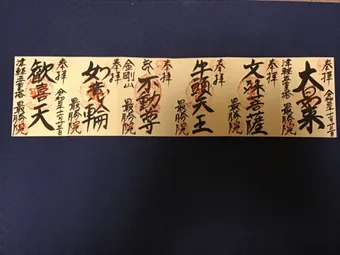 奉拝
大日如来
津軽五重塔 最勝院
奉拝
文殊菩薩
最勝院
奉拝
牛頭天王
最勝院
奉拝
不動尊
金剛山 最勝院
奉拝
如意輪
最勝院
奉拝
歓喜天
津軽五重塔 最勝院